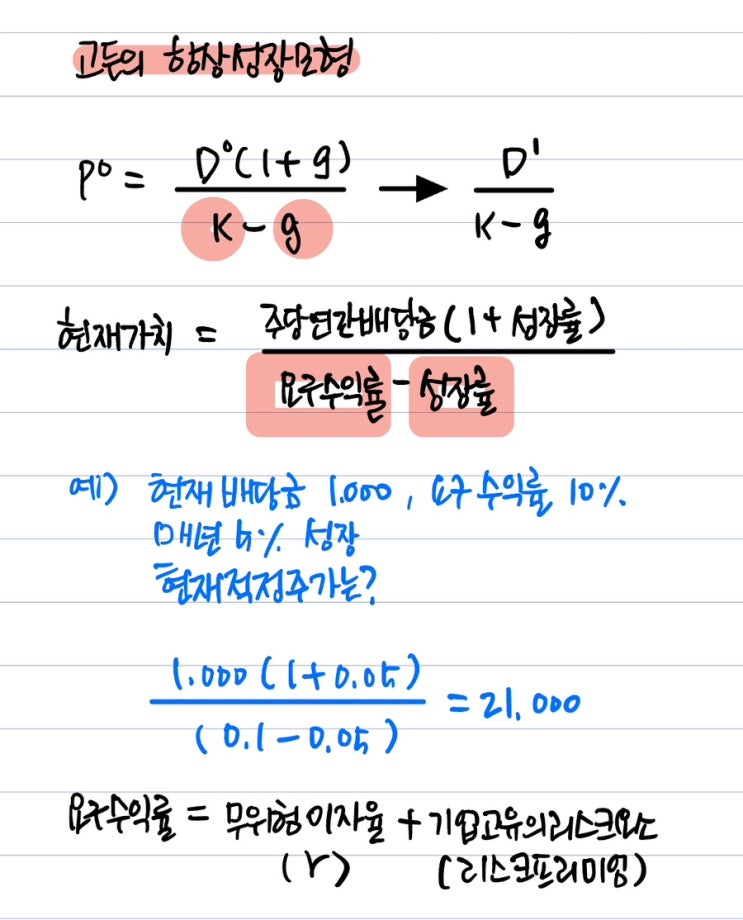 고든의 항상성장모형
P⁰ = D⁰(1+g) / K-g → D¹ / K-g
현재가치 = 주당연간배당금(1+성장률) / 요구수익률-성장률
예) 현재배당금 1.000, 요구수익률 10%.
매년 5% 성장
현재적정주가는?
1.000(1+0.05) / (0.1-0.05) = 21.000
요구수익률 = 무위험이자율 + 기업고유의리스크요소
(r) (리스크프리미엄)